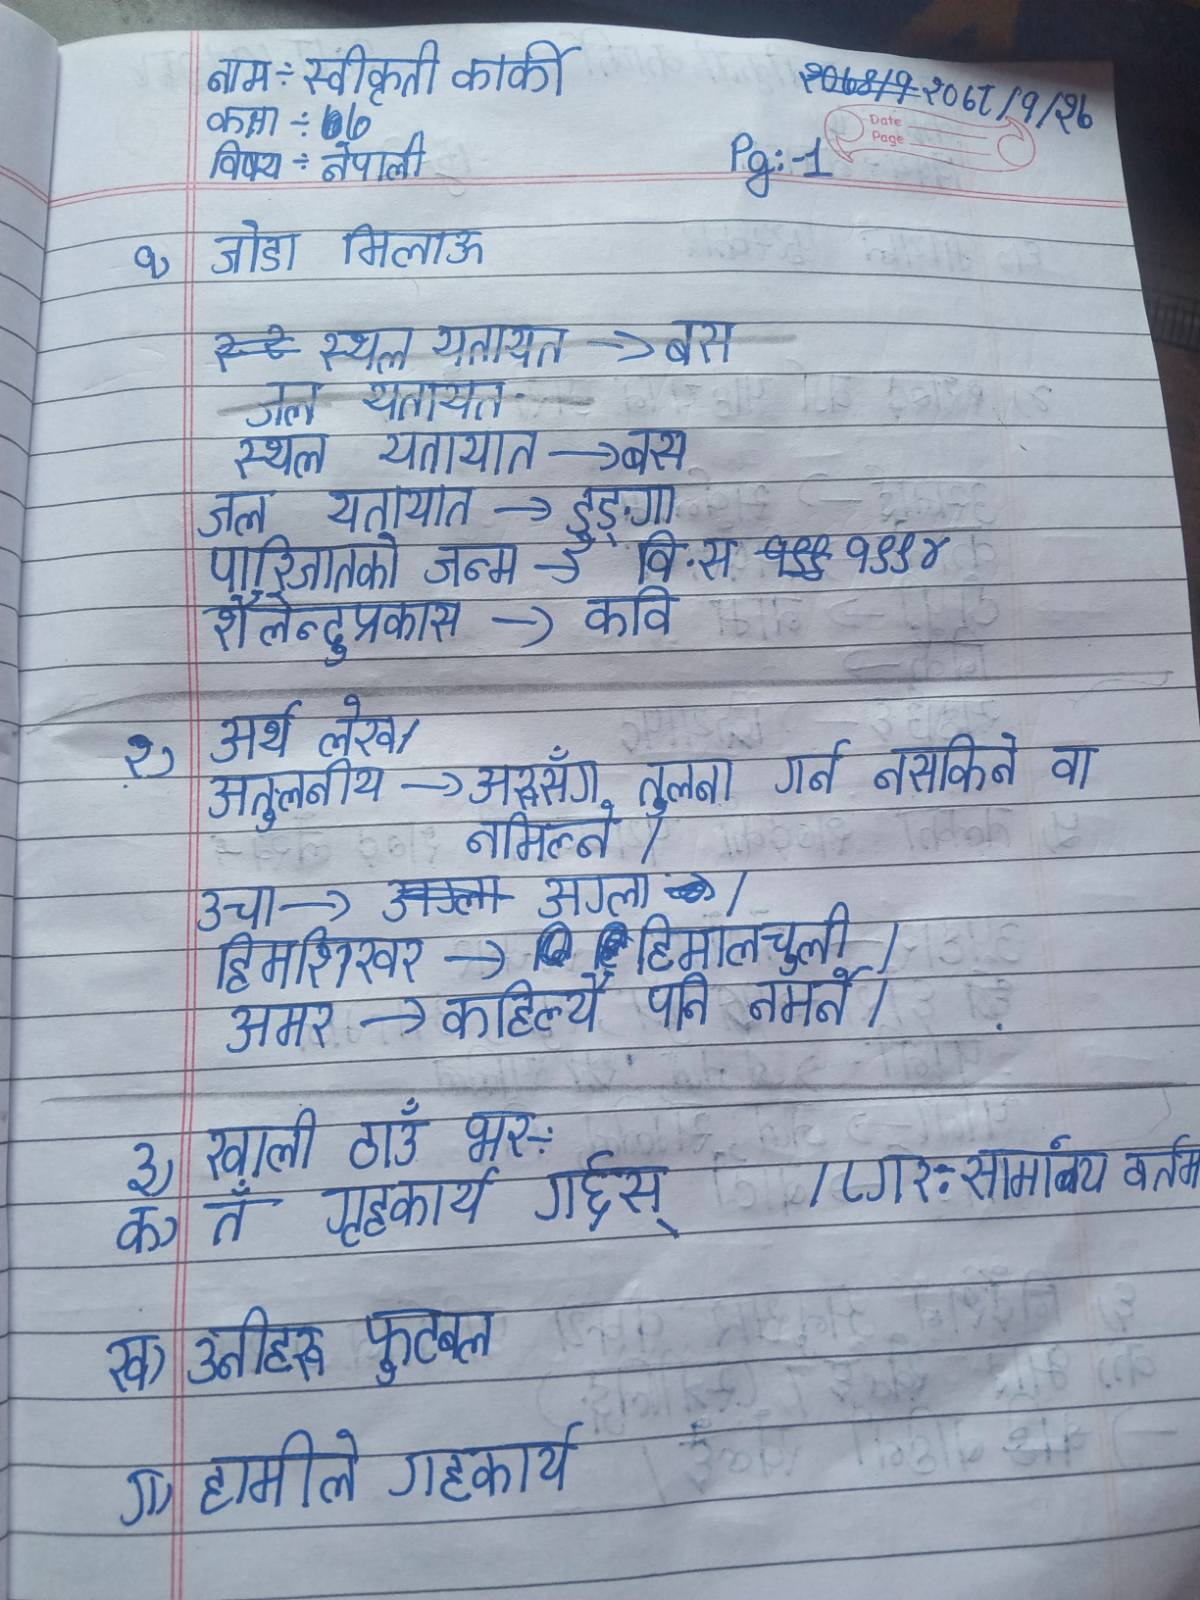 नाम ÷ स्वीकृती कार्की
२०६८/१/२७
Date
कक्षा ÷
Page
विषय ÷ नेपाली
Pg:-1
१) जोडा मिलाऊ
स्थल यतायत → बस
जल यतायत
स्थल यतायात → बस
जल यतायात → डुङ्गा
पारिजातको जन्म → वि.स १९९४
शैलेन्द्रुप्रकास → कवि
२) अर्थ लेख।
अतुलनीय → अरूसँग तुलना गर्न नसकिने वा
नमिल्ने।
उचा → अग्ला।
हिमशिखर → हिमालचुली।
अमर → कहिल्यै पनि नमर्ने।
३) खाली ठाउँ भर ÷
क) तँ गृहकार्य गर्छस् । (गर ÷ सामान्य वर्तम
ख) उनीहरू फुटबल
ग) हामीले गहकार्य